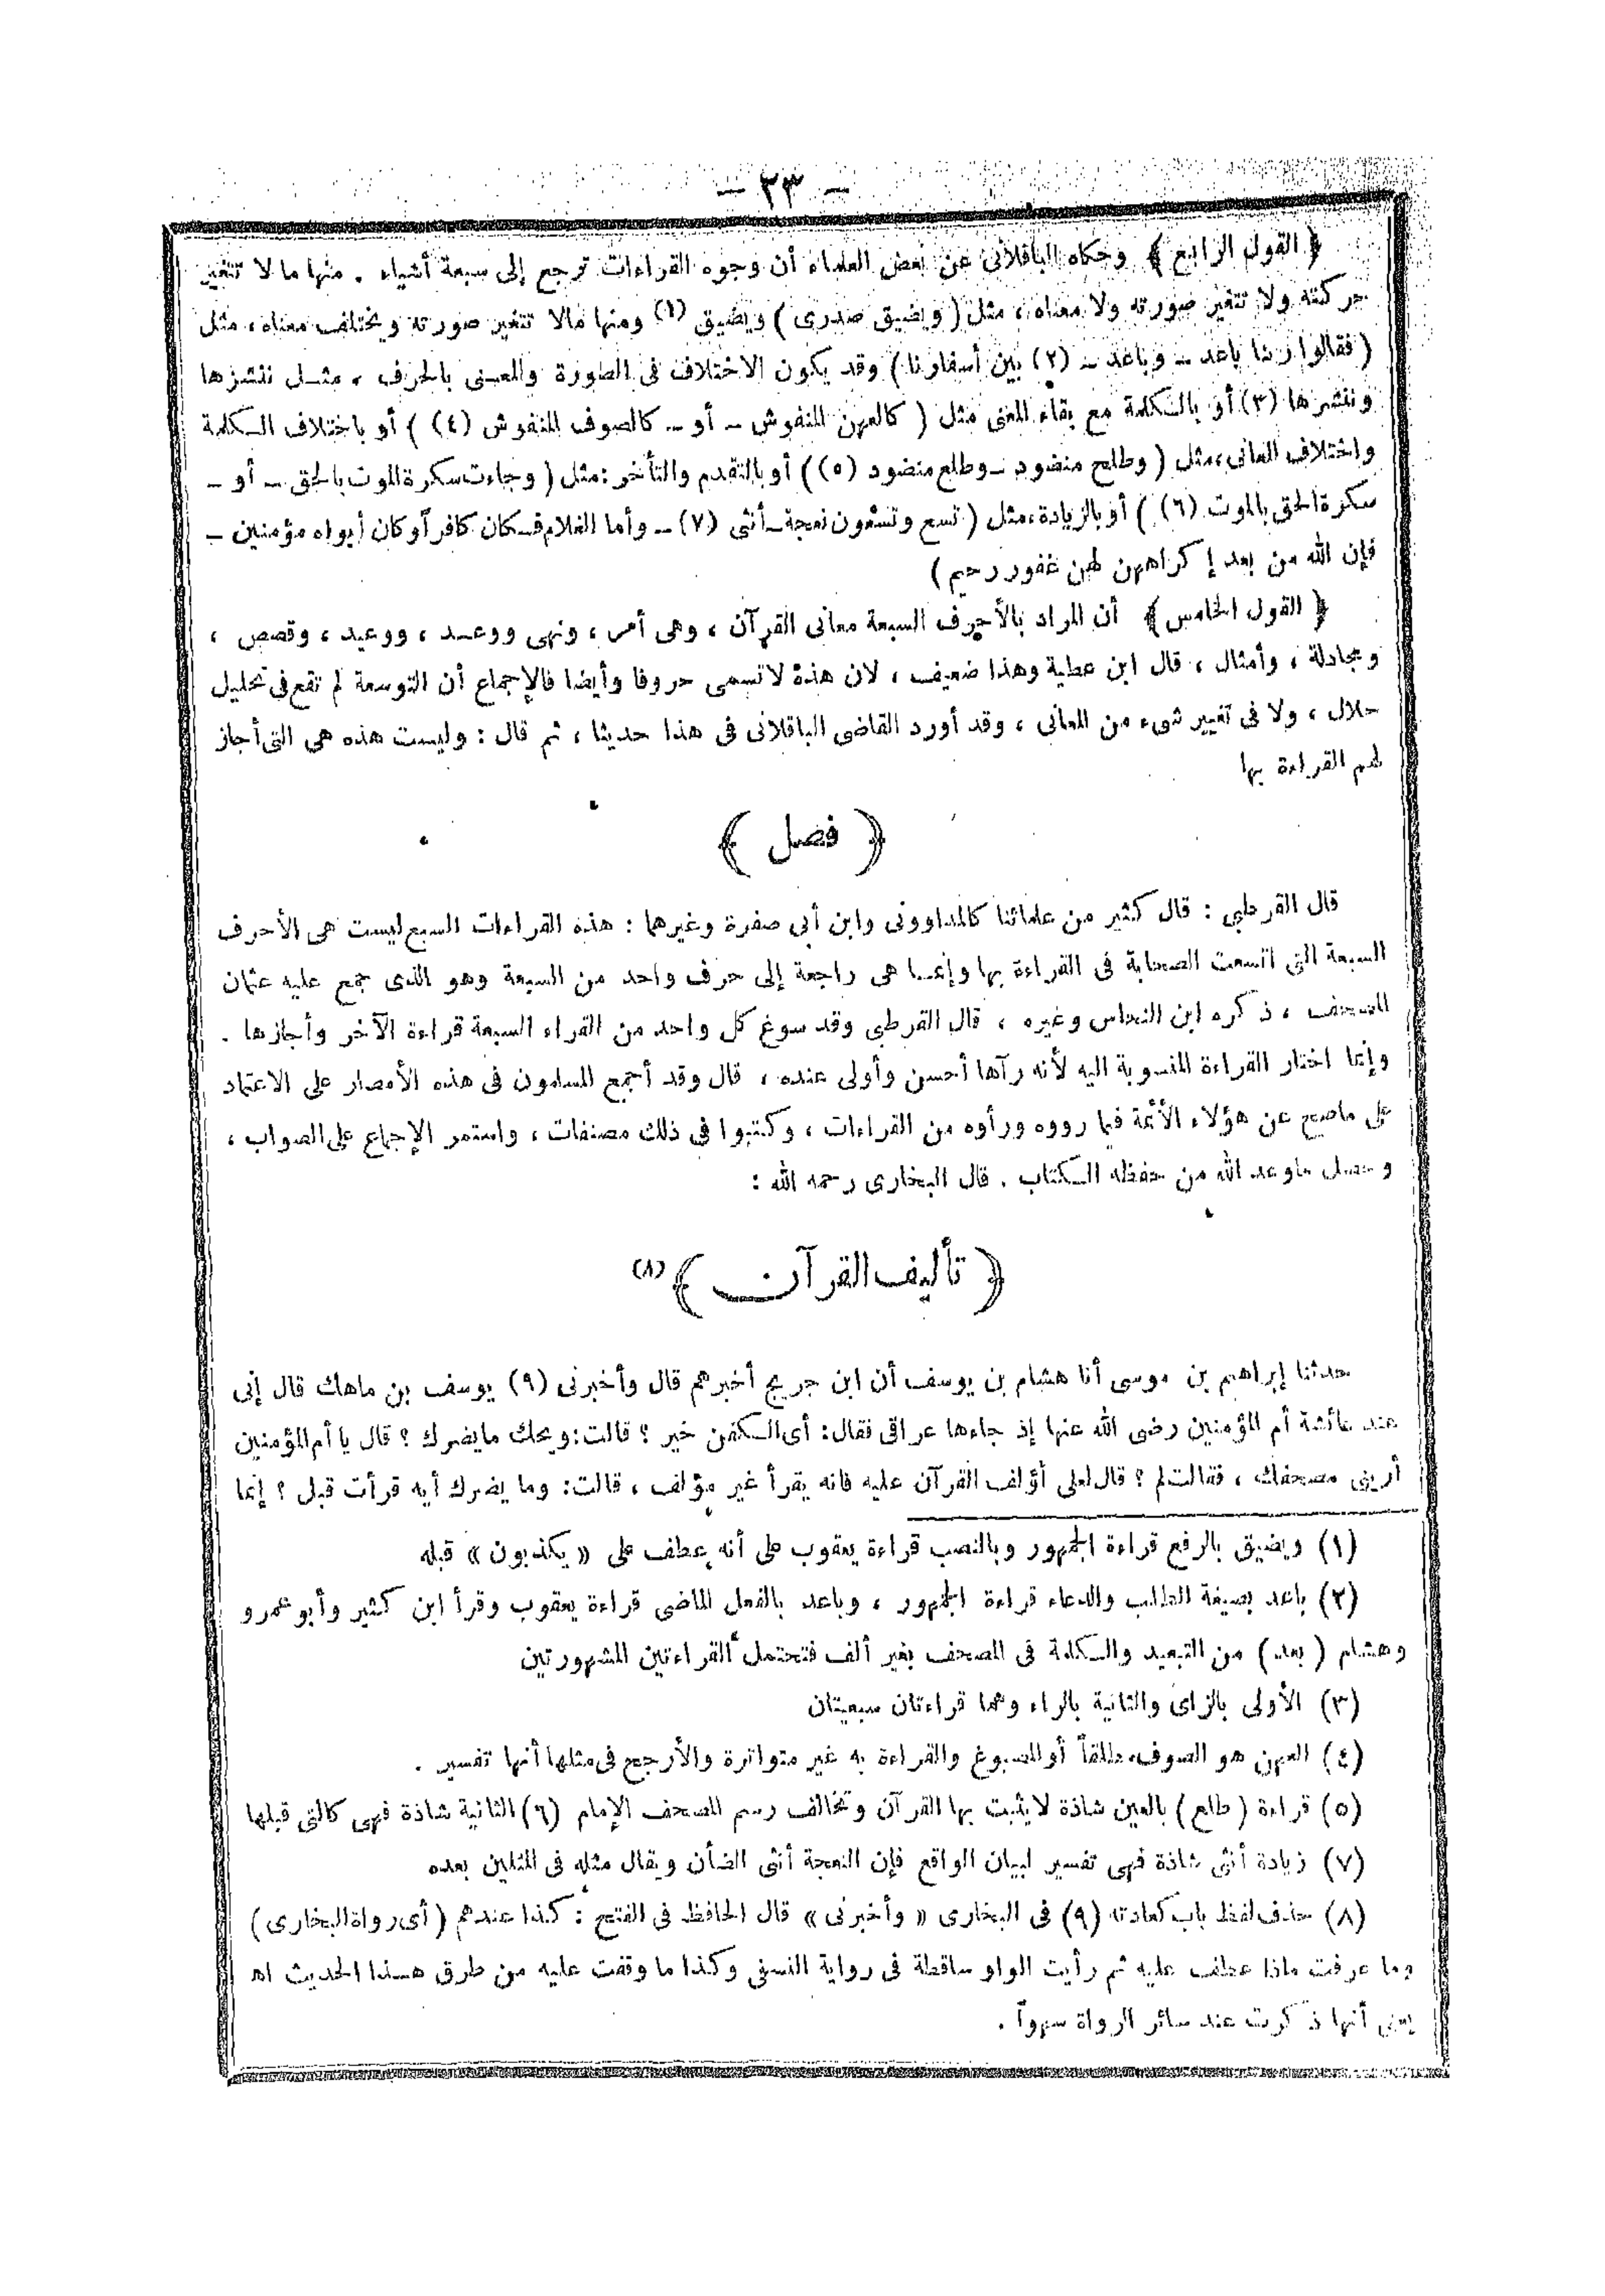 — ٣٣ —
﴿ القول الرابع ﴾ وحكاه الباقلانى عن بعض العلماء أن وجوه القراءات ترجع إلى سبعة أشياء . منها ما لا تتغير
حركته ولا تتغير صورته ولا معناه ، مثل ( ويضيق صدرى ) ويضيق (١) ومنها مالا تتغير صورته ويختلف معناه ، مثل
( فقالوا ربنا باعد ــ وباعد ــ (٢) بين أسفارنا ) وقد يكون الاختلاف فى الصورة والمعنى بالحرف ، مثل ننشزها
وننشرها (٣) أو بالكلمة مع بقاء المعنى مثل ( كالعهن المنفوش ــ أو ــ كالصوف المنفوش (٤) ) أو باختلاف الكلمة
واختلاف المعانى ، مثل ( وطلح منضود ــ وطلع منضود (٥) ) أو بالتقدم والتأخر : مثل ( وجاءت سكرة الموت بالحق ــ أو ــ
سكرة الحق بالموت (٦) ) أو بالزيادة ، مثل ( تسع وتسعون نعجة ــ أنثى (٧) ــ وأما الغلام فكان كافراً وكان أبواه مؤمنين ــ
فإن الله من بعد إكراههن لهن غفور رحيم )
﴿ القول الخامس ﴾ أن المراد بالأحرف السبعة معانى القرآن ، وهى أمر ، ونهى ووعد ، ووعيد ، وقصص ،
ومجادلة ، وأمثال ، قال ابن عطية وهذا ضعيف ، لان هذه لا تسمى حروفا وأيضا فالإجماع أن التوسعة لم تقع فى تحليل
حلال ، ولا فى تغيير شىء من المعانى ، وقد أورد القاضى الباقلانى فى هذا حديثا ، ثم قال : وليست هذه هى التى أجاز
لهم القراءة بها
﴿ فصل ﴾
قال القرطبى : قال كثير من علمائنا كالداوونى وابن أبى صفرة وغيرهما : هذه القراءات السبع ليست هى الأحرف
السبعة التى اتسعت الصحابة فى القراءة بها وإنما هى راجعة إلى حرف واحد من السبعة وهو الذى جمع عليه عثمان
المصحف ، ذكره ابن النحاس وغيره ، قال القرطبى وقد سوغ كل واحد من القراء السبعة قراءة الآخر وأجازها .
وإنما اختار القراءة المنسوبة اليه لأنه رآها أحسن وأولى عنده ، قال وقد أجمع المسلمون فى هذه الأمصار على الاعتماد
على ماصح عن هؤلاء الأئمة فيما رووه ورأوه من القراءات ، وكتبوا فى ذلك مصنفات ، واستمر الإجماع على الصواب ،
وحصل ماوعد الله من حفظه الكتاب . قال البخارى رحمه الله :
﴿ تأليف القرآن ﴾ (٨)
حدثنا إبراهيم بن موسى أنا هشام بن يوسف أن ابن جريج أخبرهم قال وأخبرنى (٩) يوسف بن ماهك قال إنى
عند عائشة أم المؤمنين رضى الله عنها إذ جاءها عراقى فقال : أى الكفن خير ؟ قالت : ويحك مايضرك ؟ قال يا أم المؤمنين
أرينى مصحفك ، فقالت لم ؟ قال لعلى أؤلف القرآن عليه فانه يقرأ غير مؤلف ، قالت : وما يضرك أيه قرأت قبل ؟ إنما
(١) ويضيق بالرفع قراءة الجمهور وبالنصب قراءة يعقوب على أنه عطف على « يكذبون » قبله
(٢) باعد بصيغة الطلب والدعاء قراءة الجمهور ، وباعد بالفعل الماضى قراءة يعقوب وقرأ ابن كثير وأبو عمرو
وهشام ( بعد ) من التبعيد والكلمة فى المصحف بغير ألف فتحتمل القراءتين المشهورتين
(٣) الأولى بالزاى والثانية بالراء وهما قراءتان سبعيتان
(٤) العهن هو الصوف مطلقاً أو المصبوغ والقراءة به غير متواترة والأرجح فى مثلها أنها تفسير .
(٥) قراءة ( طلع ) بالعين شاذة لا يثبت بها القرآن وتخالف رسم المصحف الإمام (٦) الثانية شاذة فهى كالتى قبلها
(٧) زيادة أنثى شاذة فهى تفسير لبيان الواقع فإن النعجة أنثى الضأن ويقال مثله فى المثلين بعده
(٨) حذف لفظ باب كعادته (٩) فى البخارى « وأخبرنى » قال الحافظ فى الفتح : كذا عندهم ( أى رواة البخارى )
وما عرفت ماذا عطف عليه ثم رأيت الواو ساقطة فى رواية النسفى وكذا ما وقفت عليه من طرق هذا الحديث اهـ
يعنى أنها ذكرت عند سائر الرواة سهواً .